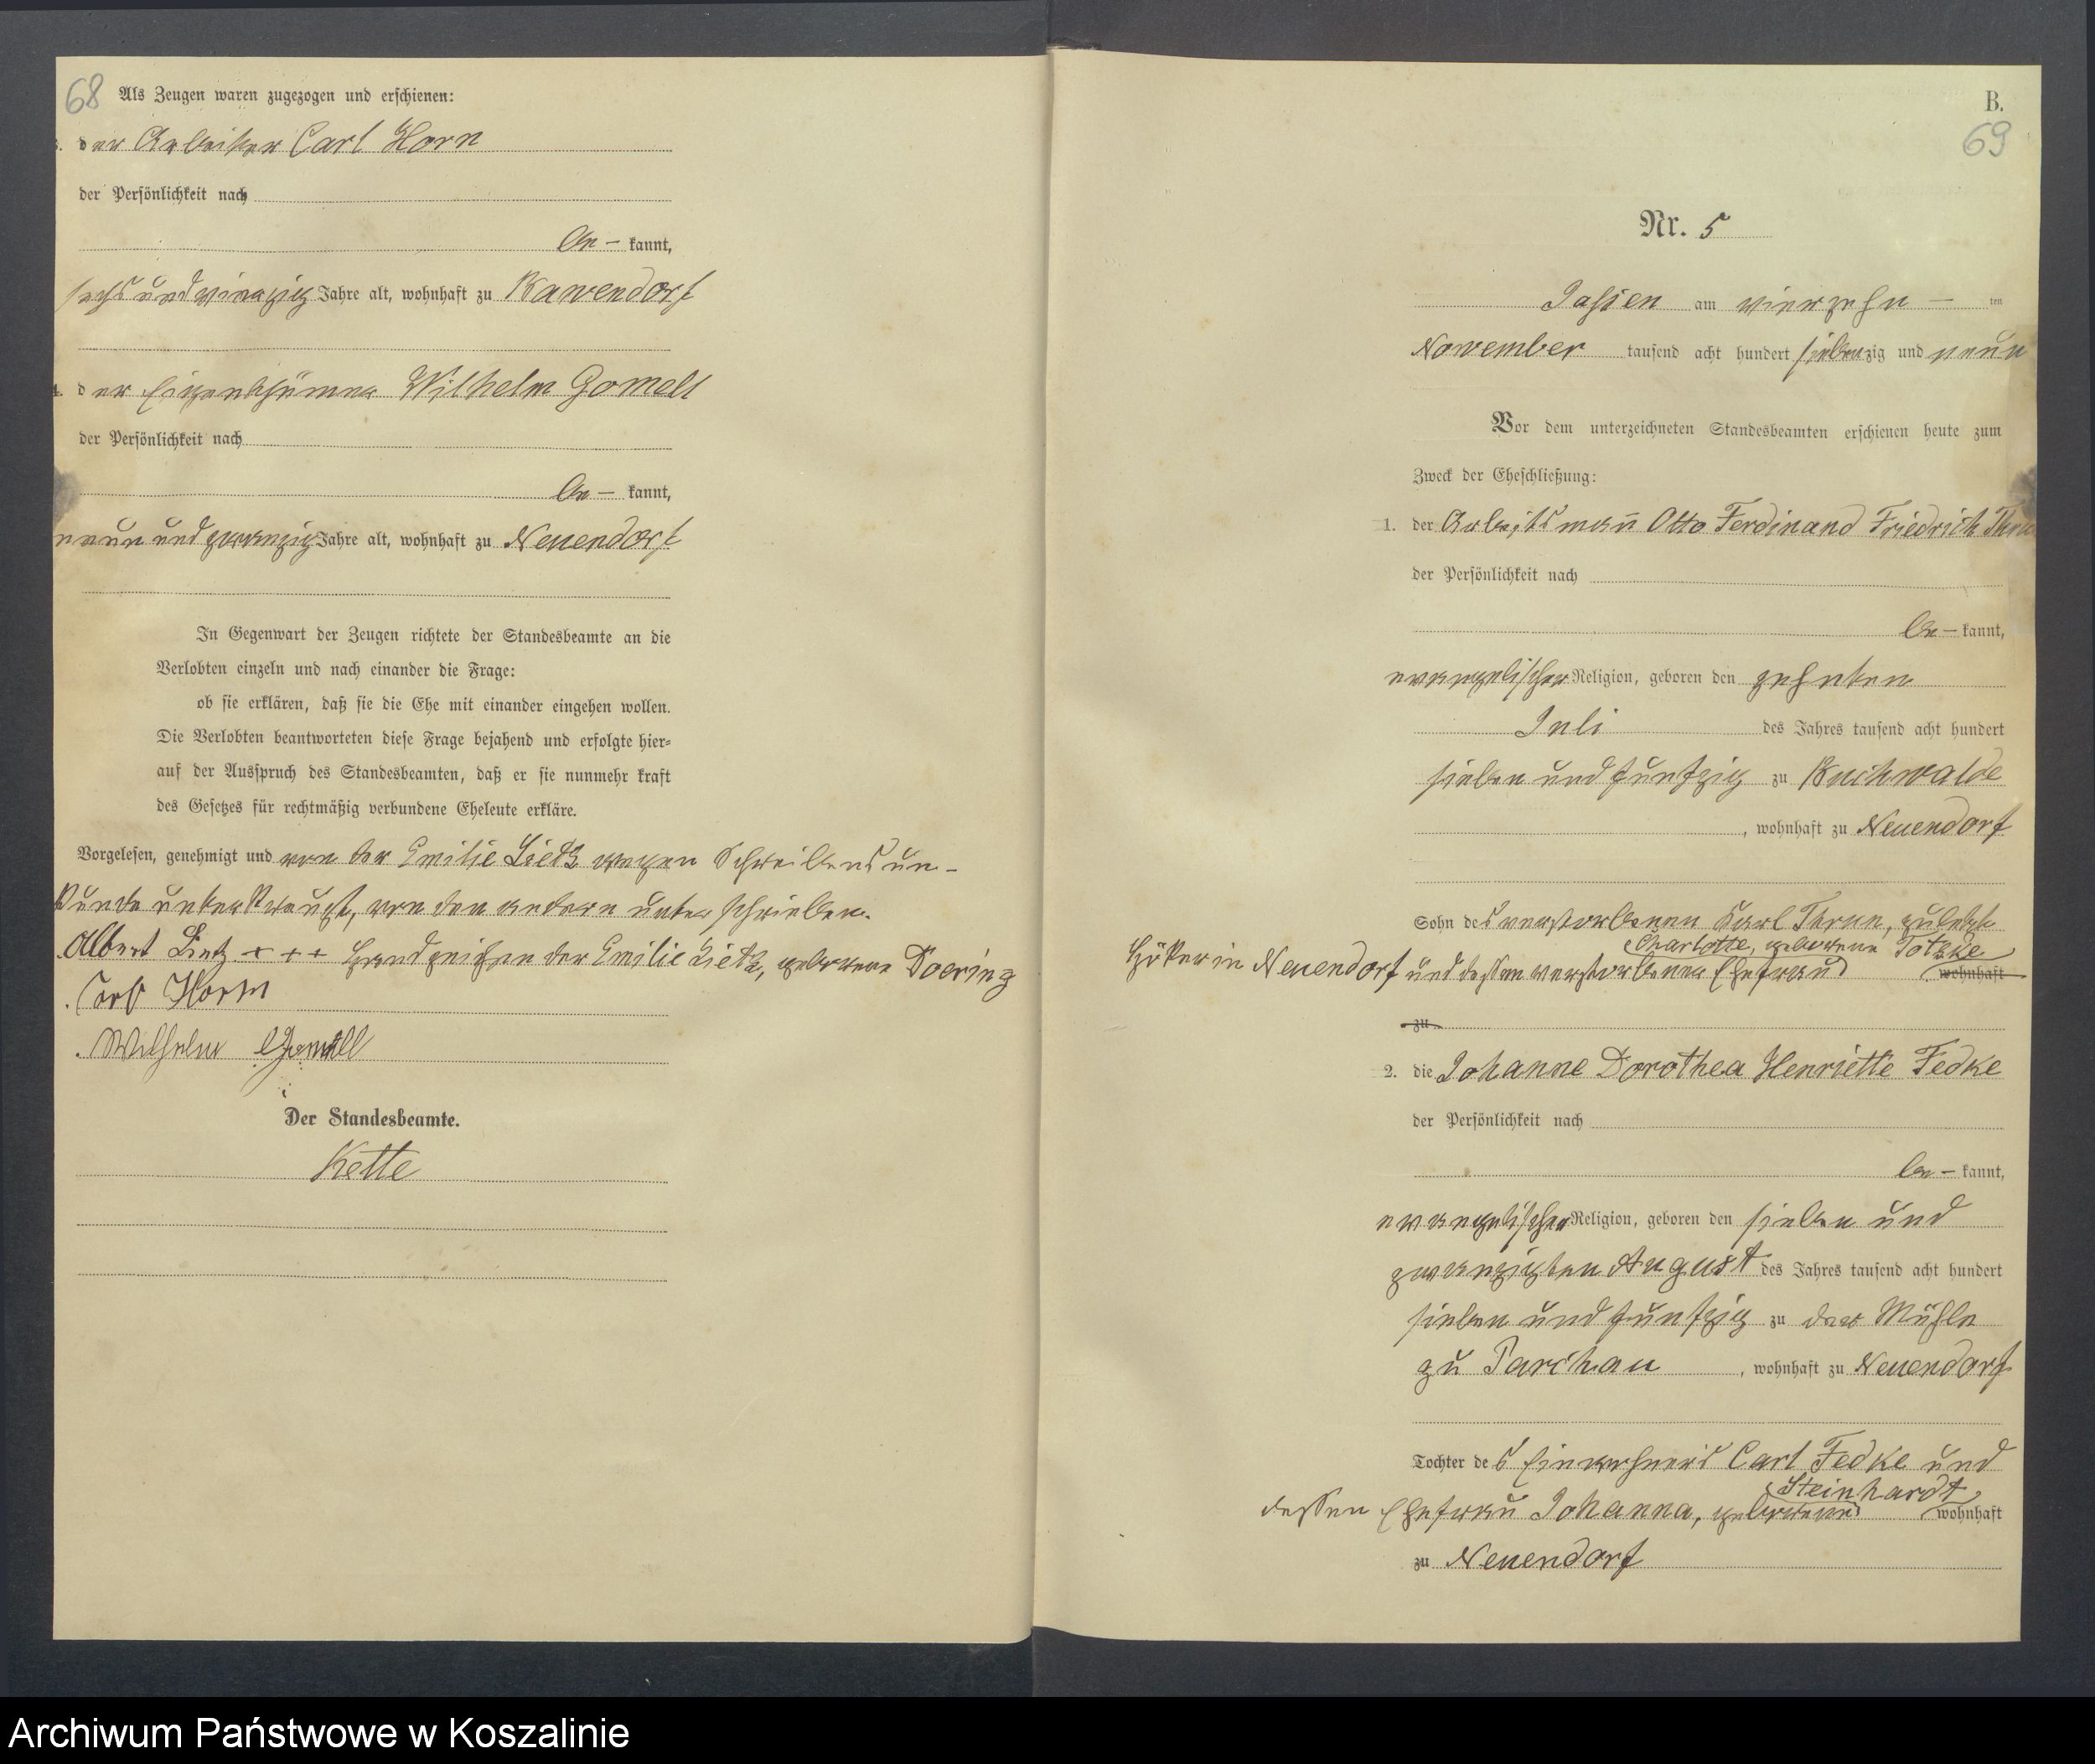 68
Als Zeugen waren zugezogen und erschienen:
3. der Arbeiter Carl Horn
der Persönlichkeit nach
be – kannt,
sechsundvierzig Jahre alt, wohnhaft zu Rawendorf
4. der Eigenthümer Wilhelm Gomell
der Persönlichkeit nach
be – kannt,
neun und zwanzig Jahre alt, wohnhaft zu Neuendorf
In Gegenwart der Zeugen richtete der Standesbeamte an die
Verlobten einzeln und nach einander die Frage:
ob sie erklären, daß sie die Ehe mit einander eingehen wollen.
Die Verlobten beantworteten diese Frage bejahend und erfolgte hier=
auf der Ausspruch des Standesbeamten, daß er sie nunmehr kraft
des Gesetzes für rechtmäßig verbundene Eheleute erkläre.
Vorgelesen, genehmigt und von der Emilie Lietz wegen Schreibensun-
kunde unterkreuzt, von den andern unterschrieben.
Albert Lietz + + + Handzeichen der Emilie Lietz, geborene Doering
Carl Horn
Wilhelm Gomell
Der Standesbeamte.
Kette
B.
69
Nr. 5
Jassen am vierzehn – ten
November tausend acht hundert siebenzig und neun
Vor dem unterzeichneten Standesbeamten erschienen heute zum
Zweck der Eheschließung:
1. der Arbeitsmañ Otto Ferdinand Friedrich Thrun
der Persönlichkeit nach
be – kannt,
evangelischer Religion, geboren den zehnten
Juli des Jahres tausend acht hundert
sieben und funfzig zu Buchwalde
, wohnhaft zu Neuendorf
Sohn des verstorbenen Karl Thrun, zuletzt
Charlotte, geborene Totzke
Höker in Neuendorf und dessen verstorbener Ehefrau wohnhaft
zu
2. die Johanne Dorothea Henriette Fedke
der Persönlichkeit nach
be – kannt,
evangelischer Religion, geboren den sieben und
zwanzigten August des Jahres tausend acht hundert
sieben und funfzig zu der Mühle
zu Parchau , wohnhaft zu Neuendorf
Tochter des Einwohners Carl Fedke und
Steinhardt
dessen Ehefrau Johanna, geborene wohnhaft
zu Neuendorf
Archiwum Państwowe w Koszalinie